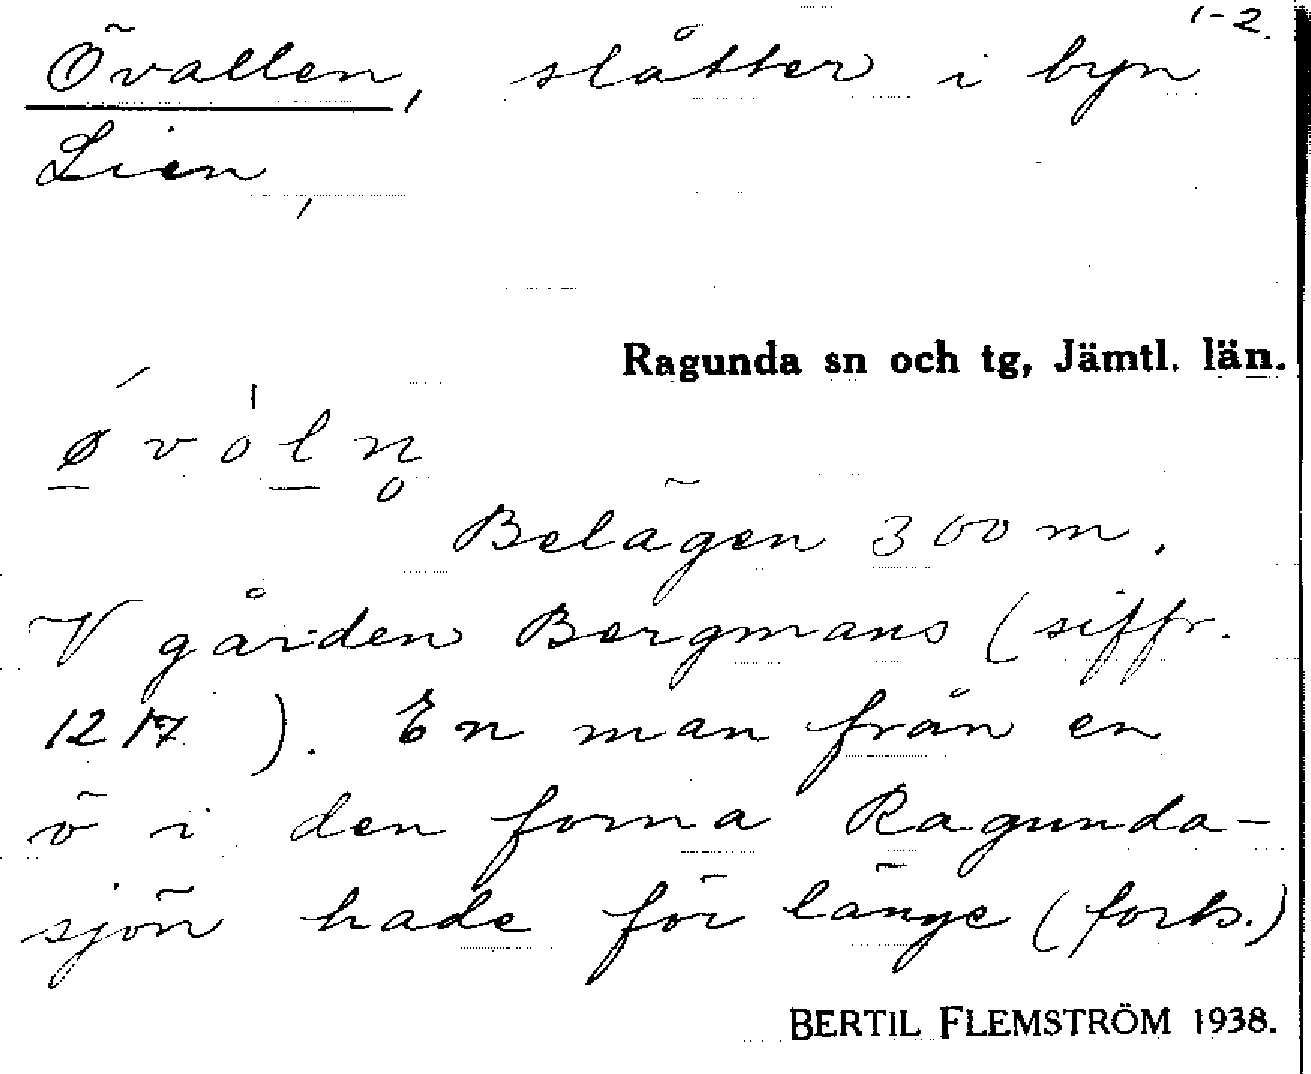 1-2.
Övallen, slåtter i byn
Lien,
Ragunda sn och tg, Jämtl. län.
Belägen 300 m.
V gården Bergmans (siffr.
1217 ). En man från en
ö i den forna Ragunda-
sjön hade för länge (forts.)
BERTIL FLEMSTRÖM 1938.